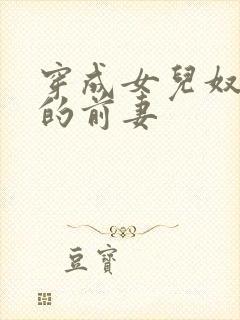 穿成女兒奴
的前妻
豆寶